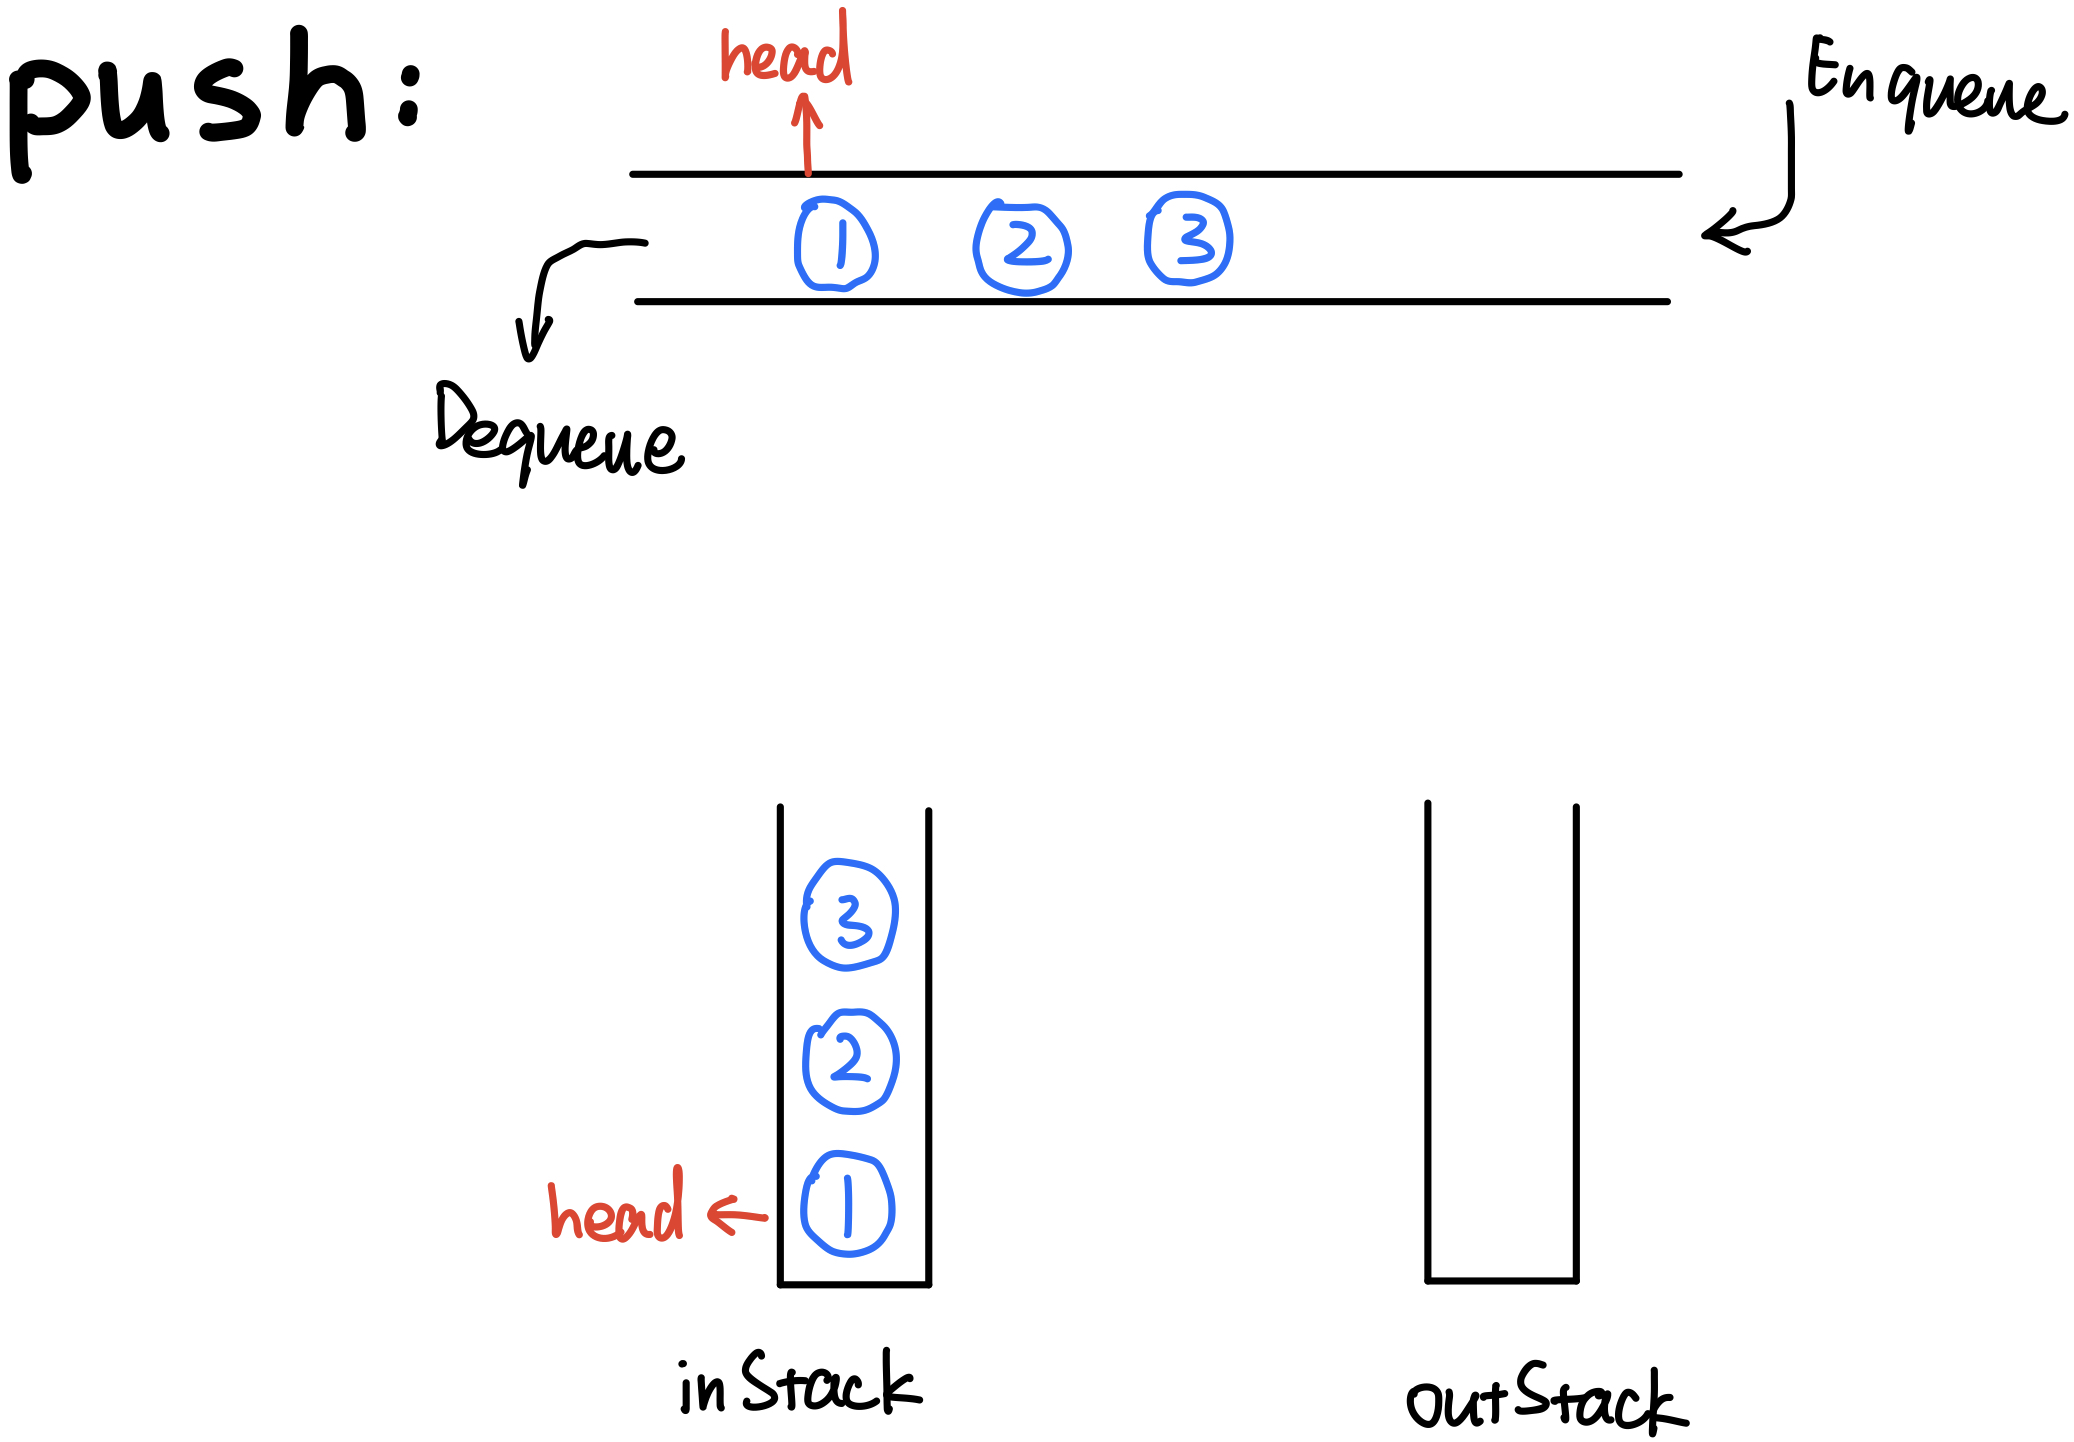 push:
head
Enqueue
1 2 3
Dequeue
3
2
head 1
inStack
outStack